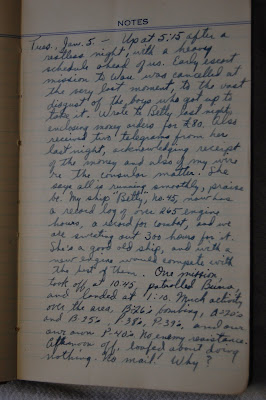 NOTES
Tues. Jan. 5. — Up at 5:15 after a
restless night, with a heavy
schedule ahead of us. Early escort
mission to Wau was cancelled at
the very last moment, to the vast
disgust of the boys who got up to
take it. Wrote to Betty last night
enclosing money orders for £80. Also
received two telegrams from her
last night, acknowledging receipt
of the money and also of my wire
re the consular matter. She
says all is running smoothly, praise
be. My ship "Betty," no. 45, now has
a record log of over 265 engine
hours, a record for combat, and we
are sweating out 300 hours for it.
She's a good old ship, and with a
new engine would compete with
the best of them. One mission,
took off at 10:45, patrolled Buna,
and landed at 1:10. Much activity
over the area, B26's bombing, A20's
and B25's, P38's, P39's, and our
own P40's. No enemy resistance.
Afternoon off, loafed about doing
nothing. No mail! Why?